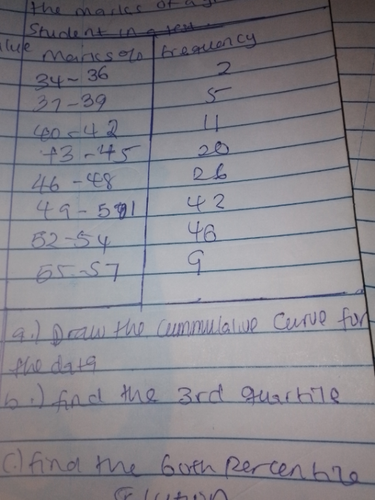 the marks of a
Student in a test
Marks % frequency
34-36 2
37-39 5
40-42 11
43-45 20
46-48 26
49-51 42
52-54 46
55-57 9
a.) Draw the cummulative curve for
the data
b.) find the 3rd quartile
c.) find the 60th percentile
Solution